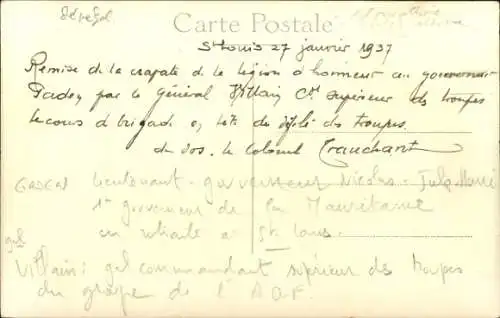 Sénégal
Carte Postale
St Louis 27 janvier 1937
Remise de la cravate de la légion d'honneur au gouverneur
par le Général Villain Ct supérieur des troupes
de défilé des troupes.
de dos. le Colonel Tranchant
lieutenant-gouverneur Nicolas-Jules Henri
1er gouverneur de la Mauritanie
en retraite à St Louis.
gal
Villain : gal commandant supérieur des troupes
du groupe de l'A O F.